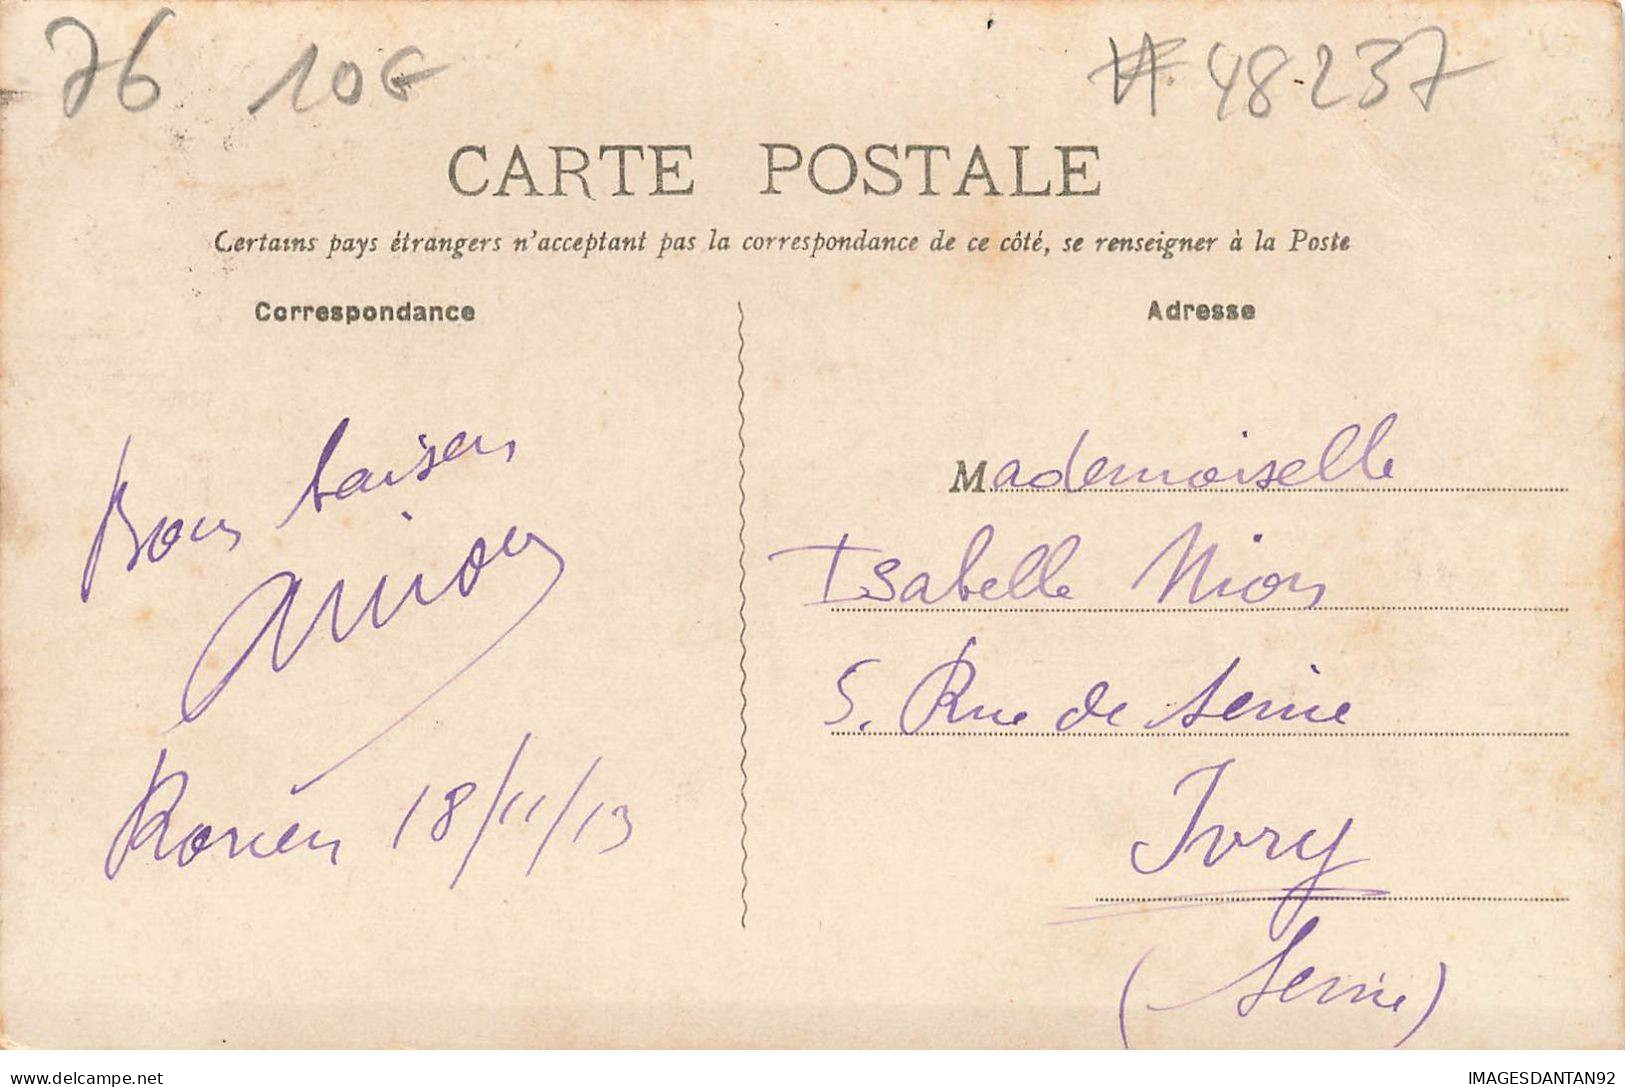 76 10€ # 48-237
CARTE POSTALE
Certains pays étrangers n'acceptant pas la correspondance de ce côté, se renseigner à la Poste
Correspondance
Bons baisers
Rouen 18/11/13
Adresse
Mademoiselle
Isabelle Nion
5. Rue de Seine
Ivry
(Seine)
delcampe.net
IMAGESDANTAN92